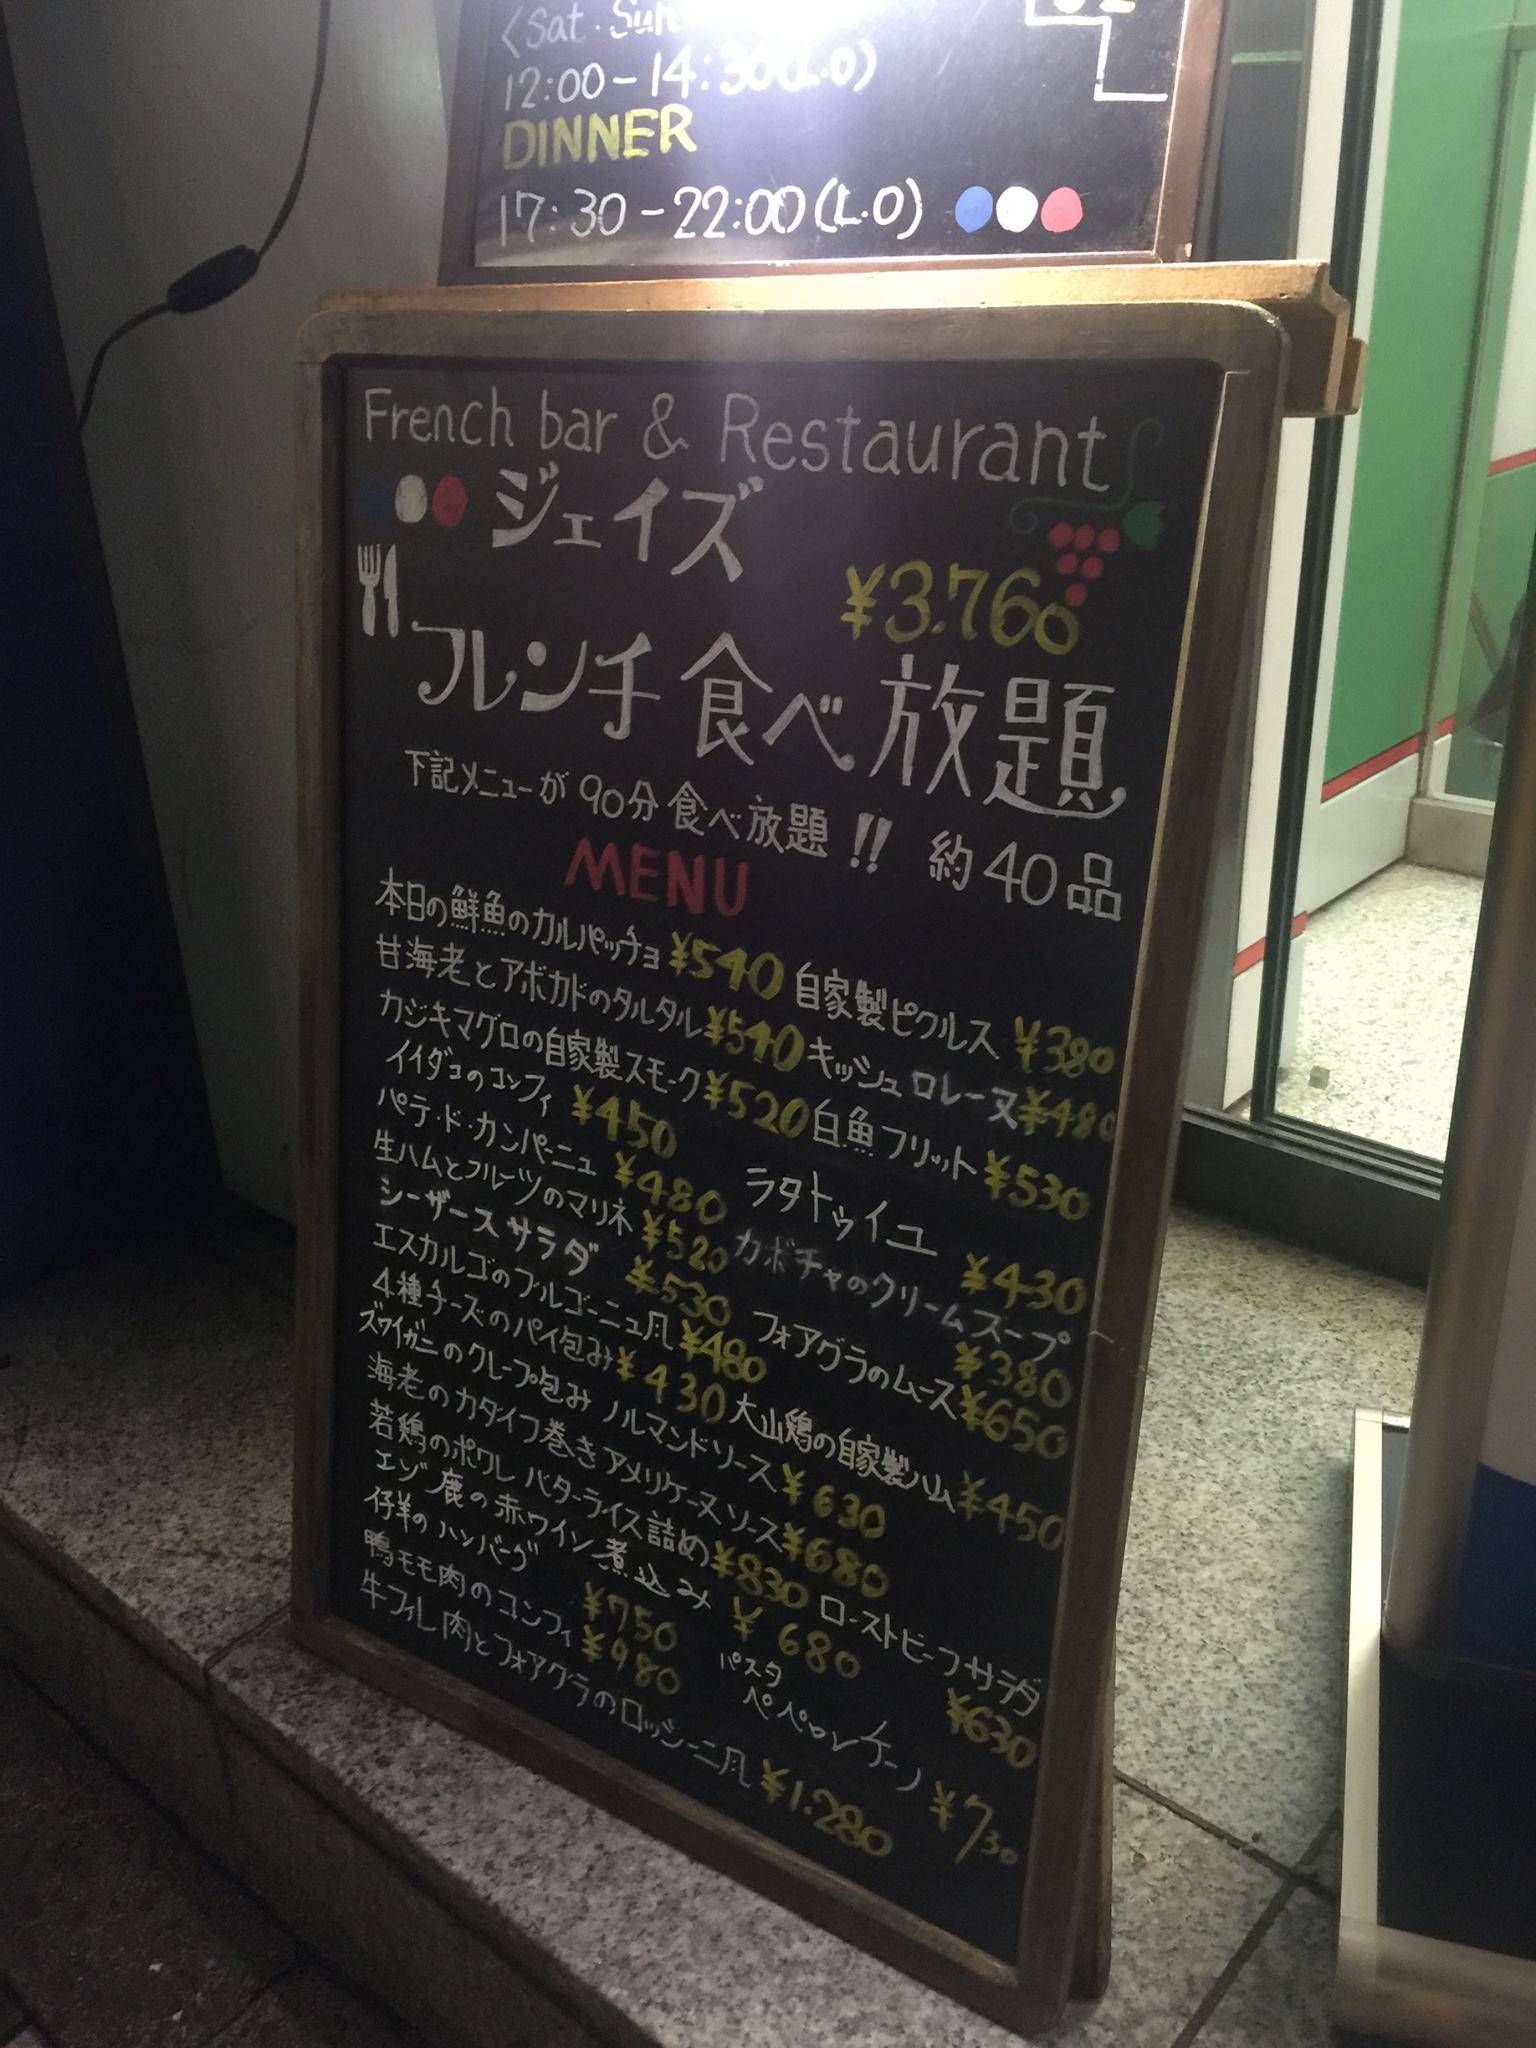 <Sat. Sun
12:00-14:30(L.O)
DINNER
17:30-22:00(L.O)
French bar & Restaurant
ジェイズ
¥3.760
フレンチ食べ放題
下記メニューが90分食べ放題!! 約40品
MENU
本日の鮮魚のカルパッチョ ¥540
甘海老とアボカドのタルタル ¥540
カジキマグロの自家製スモーク ¥520
イイダコのコンフィ ¥450
パテ・ド・カンパーニュ ¥480
生ハムとフルーツのマリネ ¥520
シーザースサラダ ¥530
エスカルゴのブルゴーニュ風 ¥480
4種チーズのパイ包み ¥430
ズワイガニのクレープ包み ノルマンドソース ¥630
海老のカダイフ巻き アメリケーヌソース ¥680
若鶏のポワレ バターライス詰め ¥830
エゾ鹿の赤ワイン煮込み ¥680
仔羊のハンバーグ ¥750
鴨モモ肉のコンフィ ¥980
牛フィレ肉とフォアグラのロッシーニ風 ¥1.280
自家製ピクルス ¥380
キッシュロレーヌ ¥480
白魚フリット ¥530
ラタトゥイユ ¥430
カボチャのクリームスープ ¥380
フォアグラのムース ¥650
大山鶏の自家製ハム ¥450
ローストビーフサラダ ¥630
パスタ
ペペロンチーノ ¥730